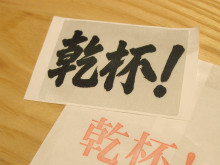 乾杯!
乾杯!